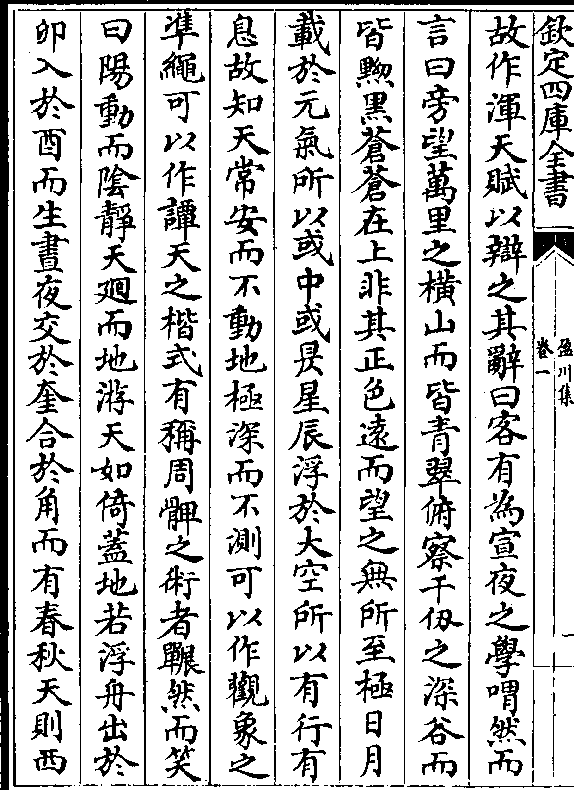 欽定四庫全書
盈川集
卷一
一
故作渾天賦以辯之其辭曰客有為宣夜之學喟然而
言曰旁望萬里之橫山而皆青翠俯察千仞之深谷而
皆黝黑蒼蒼在上非其正色遠而望之無所至極日月
載於元氣所以或中或昃星辰浮於太空所以有行有
息故知天常安而不動地極深而不測可以作觀象之
準繩可以作譚天之楷式有稱周髀之術者囅然而笑
曰陽動而陰靜天廻而地游天如倚蓋地若浮舟出於
卯入於酉而生晝夜交於奎合於角而有春秋天則西